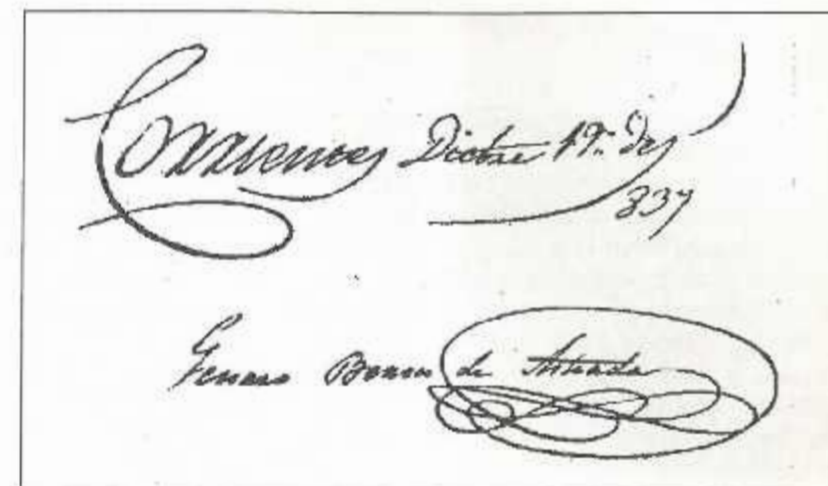 Corrientes Dicbre 19. de
837
Genaro Beron de Astrada